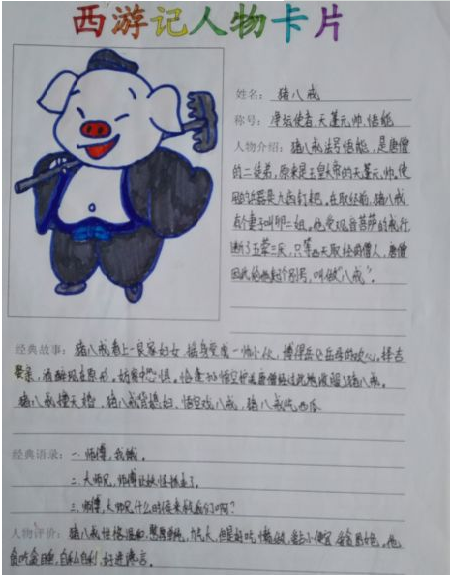 西游记人物卡片
姓名：猪八戒
称号：净坛使者 天蓬元帅 悟能
人物介绍：猪八戒法号悟能，是唐僧
的二徒弟，原来是玉皇大帝的天蓬元帅，使
用的武器是九齿钉耙。在取经前，猪八戒
有个妻子叫卯二姐，他受观音菩萨的戒行
断了五荤三厌，只等西天取经的僧人，唐僧
因此给他起个别号，叫做“八戒”。
经典故事：猪八戒看上一良家妇女，摇身变成一帅小伙，博得岳父岳母的欢心。择吉
娶亲，酒醉现
猪八戒撞天婚，猪八戒背媳妇，悟空戏八戒，猪八戒吃西瓜
经典语录：一.师傅，我饿。
二.大师兄，师傅让妖怪抓走了。
三.师傅，大师兄什么时候来救我们啊？
人物评价：猪八戒性格温和，憨厚单纯，力气大，但是好吃懒做，贪占小便宜，贪图女色，他
贪吃贪睡，自私自利，好进谗言。